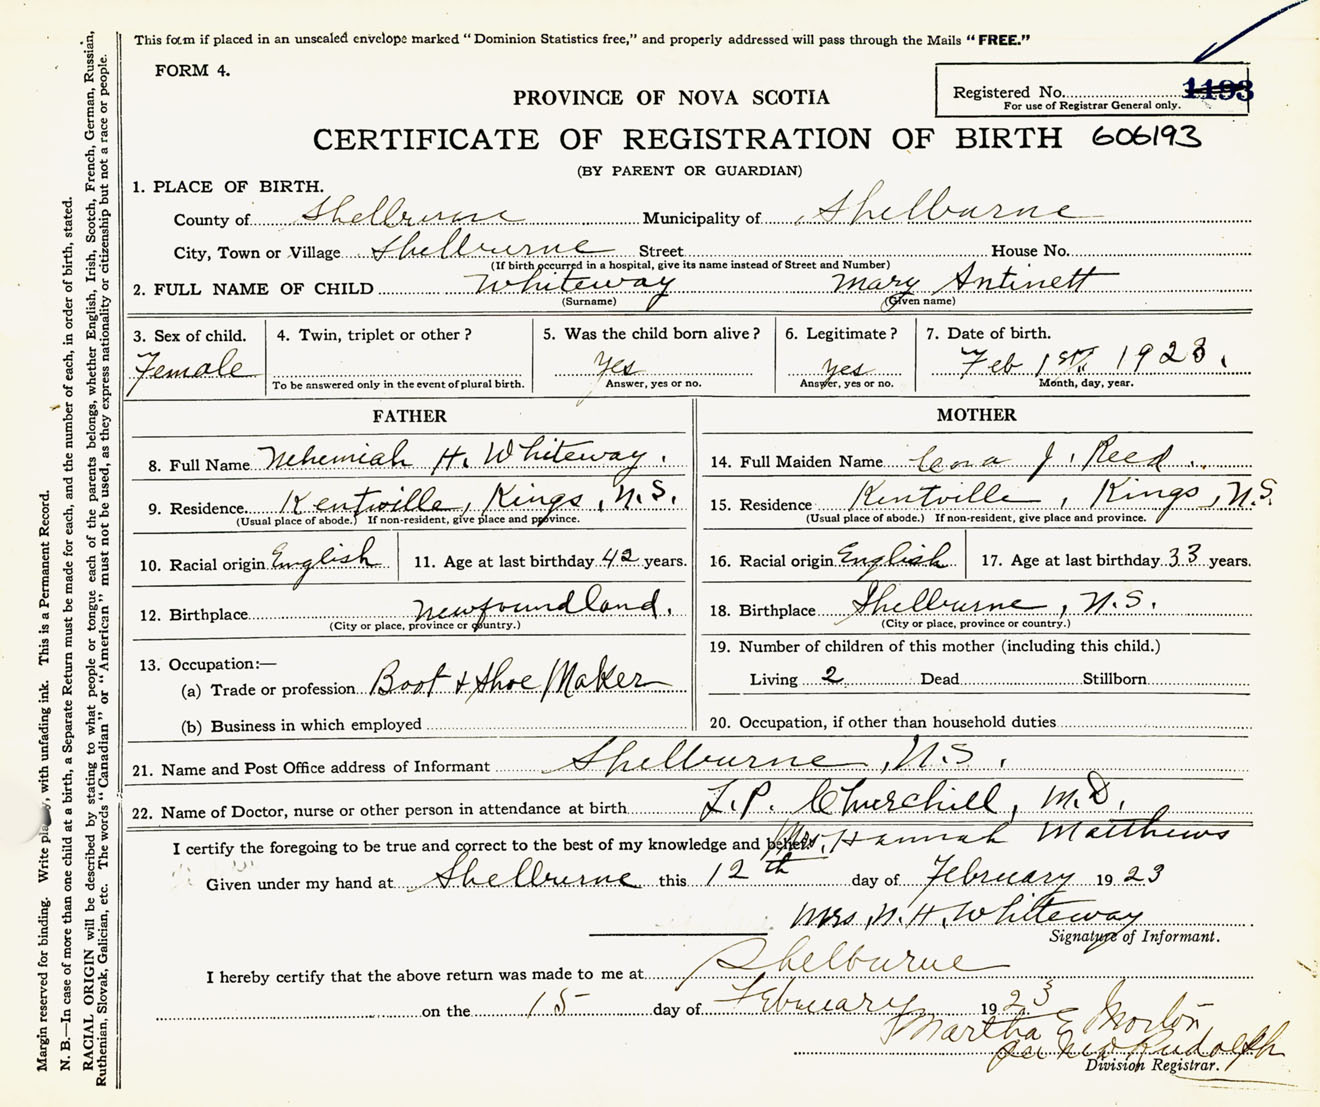 This form if placed in an unsealed envelope marked "Dominion Statistics free," and properly addressed will pass through the Mails "FREE."
FORM 4.
Registered No. 1193
For use of Registrar General only.
PROVINCE OF NOVA SCOTIA
CERTIFICATE OF REGISTRATION OF BIRTH 606193
(BY PARENT OR GUARDIAN)
1. PLACE OF BIRTH.
County of Shelburne Municipality of Shelburne
City, Town or Village Shelburne Street House No.
(If birth occurred in a hospital, give its name instead of Street and Number)
2. FULL NAME OF CHILD Whiteway Mary Antinett
(Surname) (Given name)
3. Sex of child. 4. Twin, triplet or other? 5. Was the child born alive? 6. Legitimate? 7. Date of birth.
Female Yes yes Feb 1st. 1923.
To be answered only in the event of plural birth. Answer, yes or no. Answer, yes or no. Month, day, year.
FATHER MOTHER
8. Full Name Nehemiah H. Whiteway. 14. Full Maiden Name J. Reed
9. Residence Kentville, Kings, N.S. 15. Residence Kentville, Kings, N.S.
(Usual place of abode.) If non-resident, give place and province. (Usual place of abode.) If non-resident, give place and province.
10. Racial origin English 11. Age at last birthday 42 years. 16. Racial origin English 17. Age at last birthday 33 years.
12. Birthplace Newfoundland. 18. Birthplace Shelburne, N.S.
(City or place, province or country.) (City or place, province or country.)
13. Occupation:— 19. Number of children of this mother (including this child.)
(a) Trade or profession Boot & Shoe Maker Living 2 Dead Stillborn
(b) Business in which employed 20. Occupation, if other than household duties
21. Name and Post Office address of Informant Shelburne, N.S.
22. Name of Doctor, nurse or other person in attendance at birth L.P. Churchill, M.D.
I certify the foregoing to be true and correct to the best of my knowledge and belief. Mrs. Hannah Matthews
Given under my hand at Shelburne this 12th day of February 1923
Mrs N. H. Whiteway
Signature of Informant.
I hereby certify that the above return was made to me at Shelburne
on the 15 day of February 1923
Martha E Morton
Rudolph
Division Registrar.
Margin reserved for binding. Write plainly, with unfading ink. This is a Permanent Record.
N. B.—In case of more than one child at a birth, a Separate Return must be made for each, and the number of each, in order of birth, stated.
RACIAL ORIGIN will be described by stating to what people or tongue each of the parents belongs, whether English, Irish, Scotch, French, German, Russian,
Ruthenian, Slovak, Galician, etc. The words "Canadian" or "American" must not be used, as they express nationality or citizenship but not a race or people.